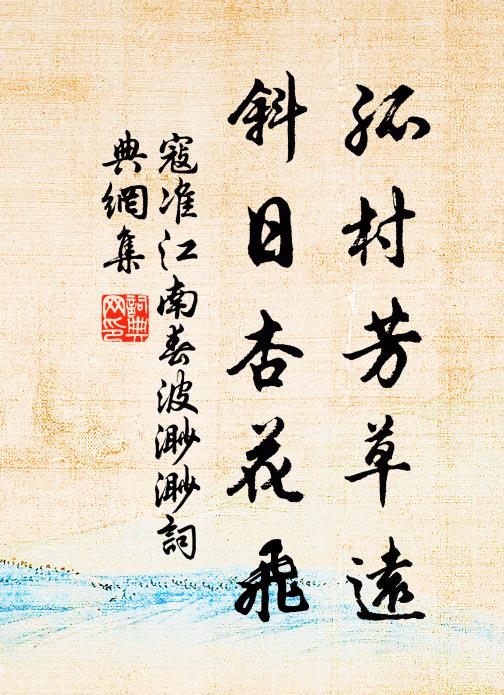 孤村芳草遠
斜日杏花飛
寇准江南春波渺渺詞
典網集
詞典網印